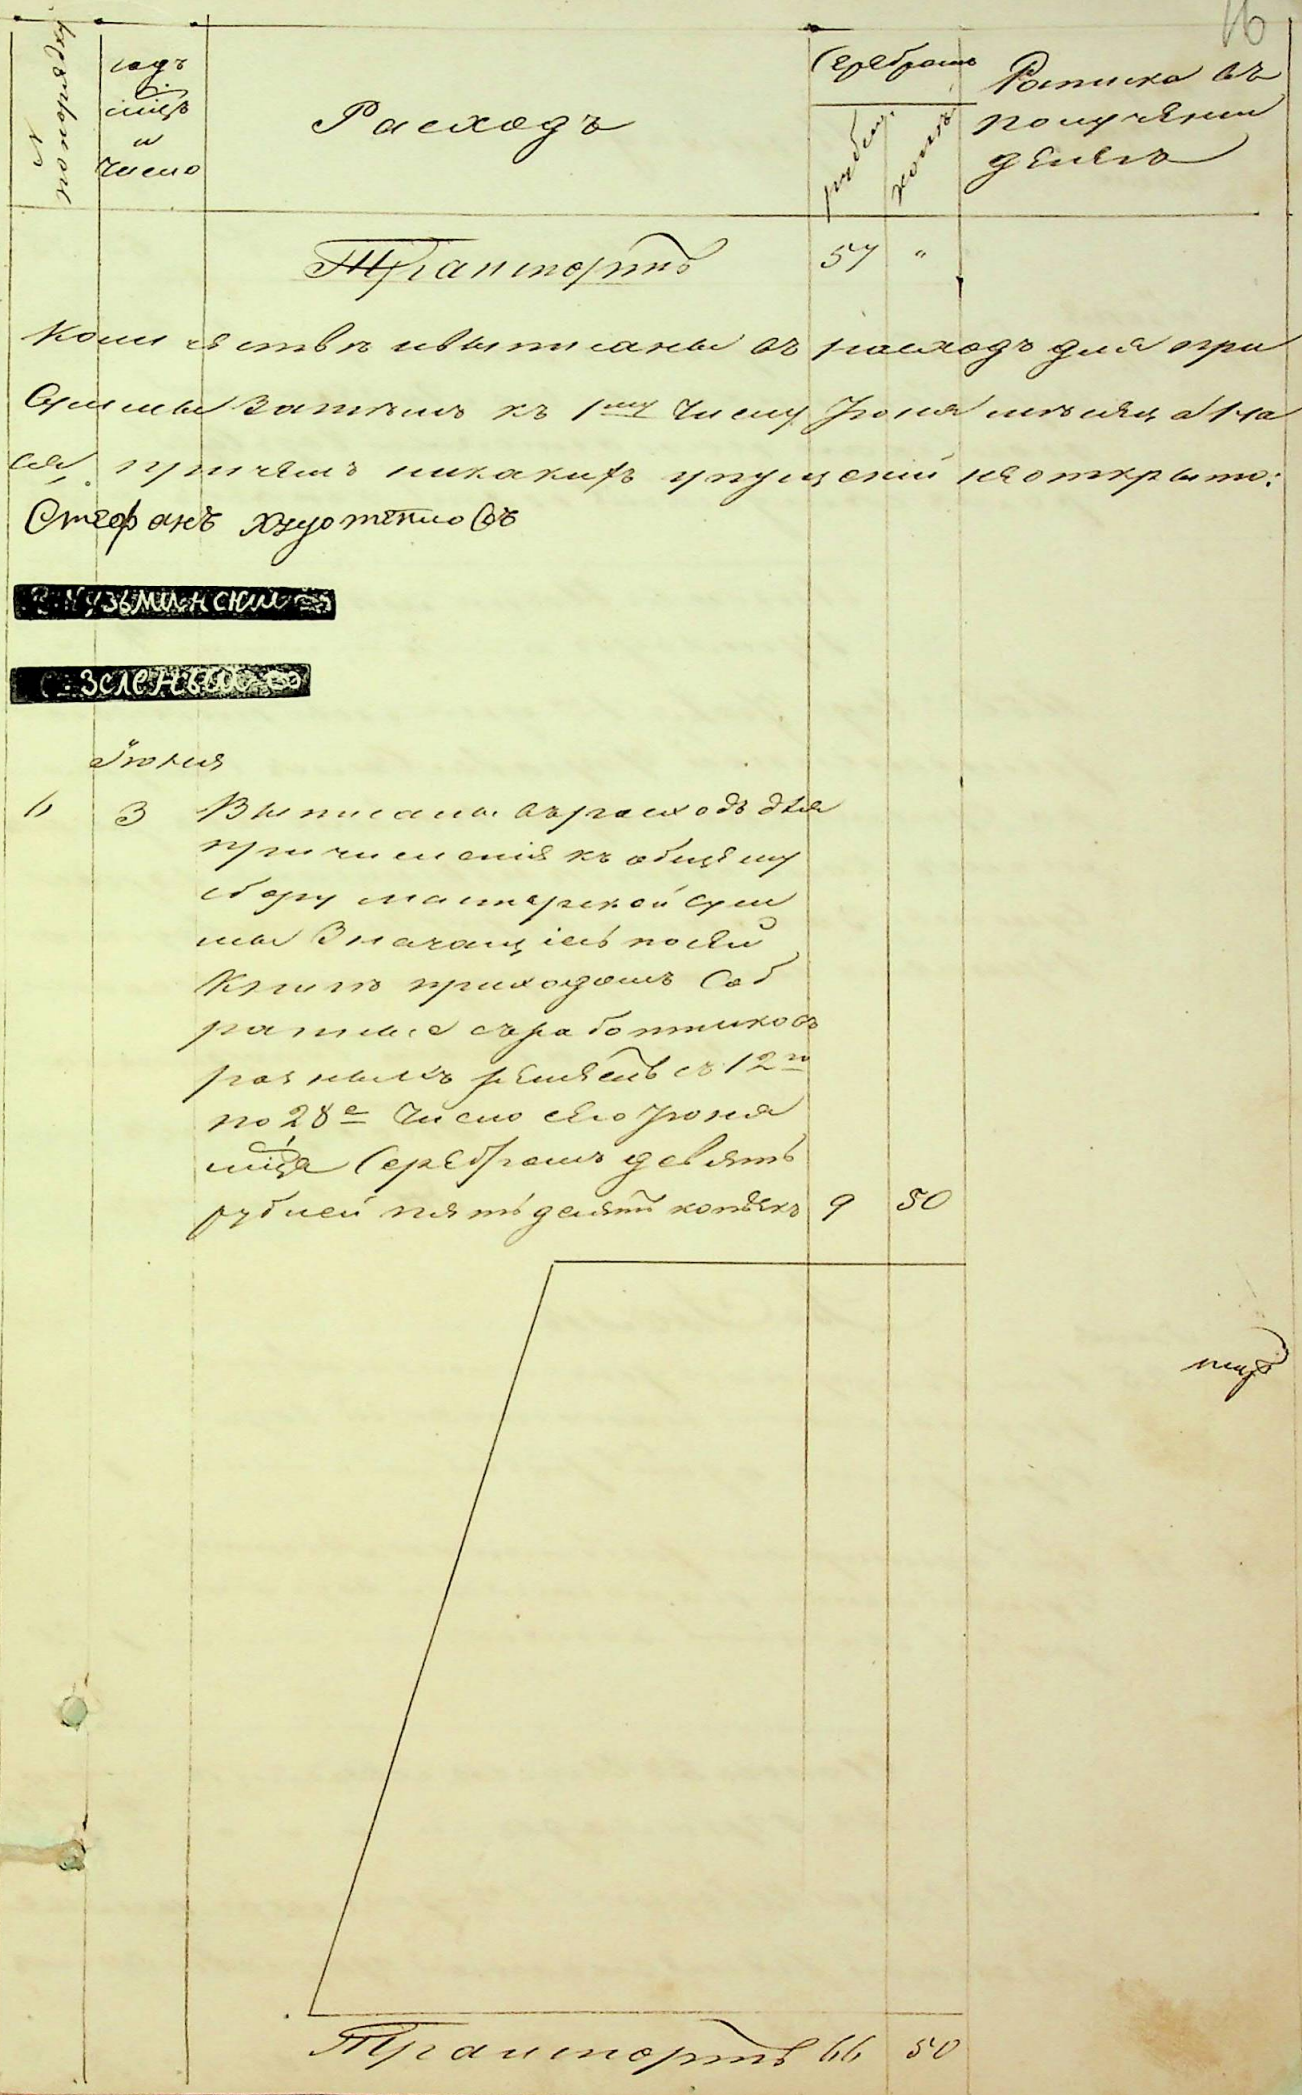 16
№ по порядку
годъ
мцъ
и
число
Расходъ
Серебромъ
рубли
копѣ
Расписка въ
получении
денегъ
Транспортъ 57 "
количествѣ ивыписаны въ расходъ для при
суммы затѣмъ къ 1му числу Июня мѣсяца
при чемъ никакихъ упущений неоткрыто:
Стефанъ
Кузьминский
Зеленый
Июня
6 3 Выписаны въ расходъ для
причисления къ общему
сбору мастерской сум
мы Значащиеся посей
Книги приходомъ Соб
ранные съработниковъ
разныхъ ремеслъ съ 12го
по 28е Число сего Июня
мца Серебромъ девять
рублей пятьдесятъ копѣекъ 9 50
Транспортъ 66 50